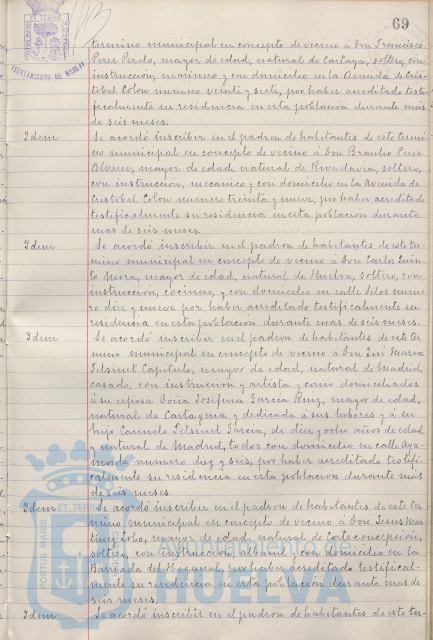 69
termino municipal en concepto de vecino á Don Francisco
Perez Perdo, mayor de edad, natural de Cartaya, soltero, con
instrucción, marinero y con domicilio en la Avenida de Cris-
tobal Colon numero veinte y siete, por haber acreditado testi-
ficalmente su residencia en esta población durante más
de seis meses.
Idem Se acordó inscribir en el padron de habitantes de este termi-
no municipal en concepto de vecino á Don Braulio Perez
Alvarez, mayor de edad, natural de Rivadavia, soltero,
con instrucción, mecanico y con domicilio en la Avenida de
Cristobal Colon numero treinta y nueve, por haber acreditado
testificalmente su residencia en esta población durante
mas de seis meses.
Idem Se acordó inscribir en el padron de habitantes de este ter-
mino municipal en concepto de vecino á Don Carlos Quin-
to Mora, mayor de edad, natural de Huelva, soltero, con
instrucción, cocinero, y con domicilio en calle Silos nume-
ro diez y nueve por haber acreditado testificalmente su
residencia en esta población durante mas de seis meses.
Idem Se acordó inscribir en el padron de habitantes de este ter-
mino municipal en concepto de vecino á Don José Maria
Telsinet Capitulo, mayor de edad, natural de Madrid,
casado, con instrucción y artista y como domiciliados
á su esposa Doña Josefina Garcia Ruiz, mayor de edad,
natural de Cartagena y dedicada á sus labores y á su
hijo Carmelo Telsinet Garcia, de diez y ocho años de edad
y natural de Madrid, todos con domicilio en calle Aya-
monte numero diez y seis, por haber acreditado testifi-
calmente su residencia en esta población durante más
de seis meses.
Idem Se acordó inscribir en el padron de habitantes de este ter-
mino municipal en concepto de vecino á Don Jesus Mar-
tinez Lobo, mayor de edad, natural de Corteconcepción,
soltero, con instrucción, albañil, y con domicilio en la
Barriada del Higueral, por haber acreditado testifical-
mente su residencia en esta población durante mas de
seis meses.
Idem Se acordó inscribir en el padron de habitantes de este ter-
AYUNTAMIENTO DE HUELVA
PORTUS MARIS ET TERRÆ
Ayuntamiento de
HUELVA